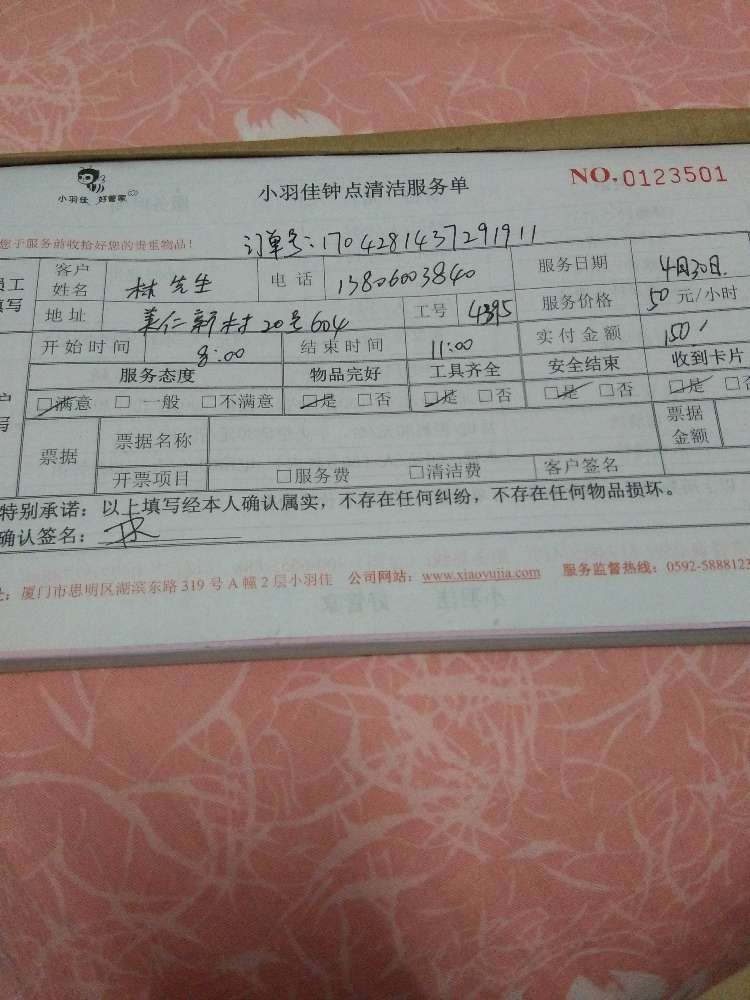 小羽佳 好管家
小羽佳钟点清洁服务单
NO. 0123501
您于服务前收拾好您的贵重物品！
订单号：1704281437291911
员工 客户姓名 林先生 电话 13806003840 服务日期 4月30日.
填写 地址 美仁新村20号604 工号 4395 服务价格 50元/小时
开始时间 8:00 结束时间 11:00 实付金额 150
服务态度 物品完好 工具齐全 安全结束 收到卡片
☑满意 □一般 □不满意 ☑是 □否 ☑是 □否 ☑是 □否 ☑是 □否
票据 票据名称 票据金额
开票项目 □服务费 □清洁费 客户签名
特别承诺：以上填写经本人确认属实，不存在任何纠纷，不存在任何物品损坏。
确认签名： 林
：厦门市思明区湖滨东路319号A幢2层小羽佳 公司网站：www.xiaoyujia.com 服务监督热线：0592-5888123